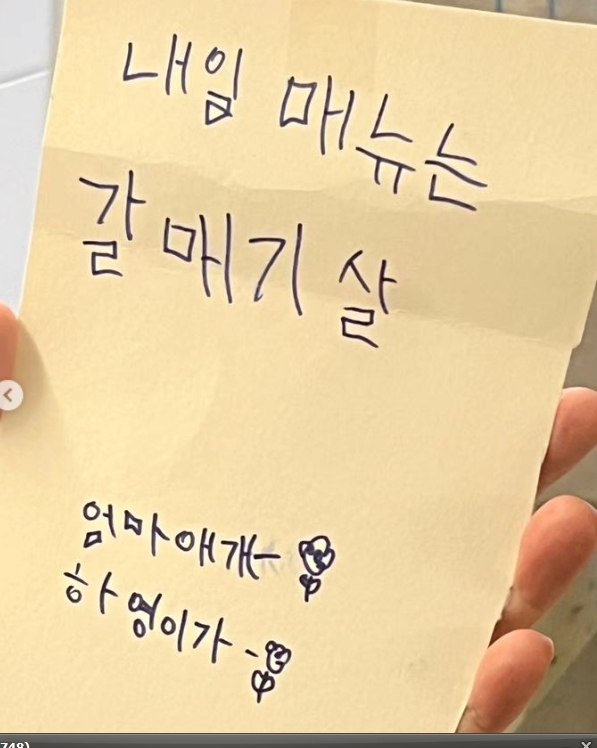 내임 매뉴는
갈매기 살
엄마애개-
하영이가-
748)